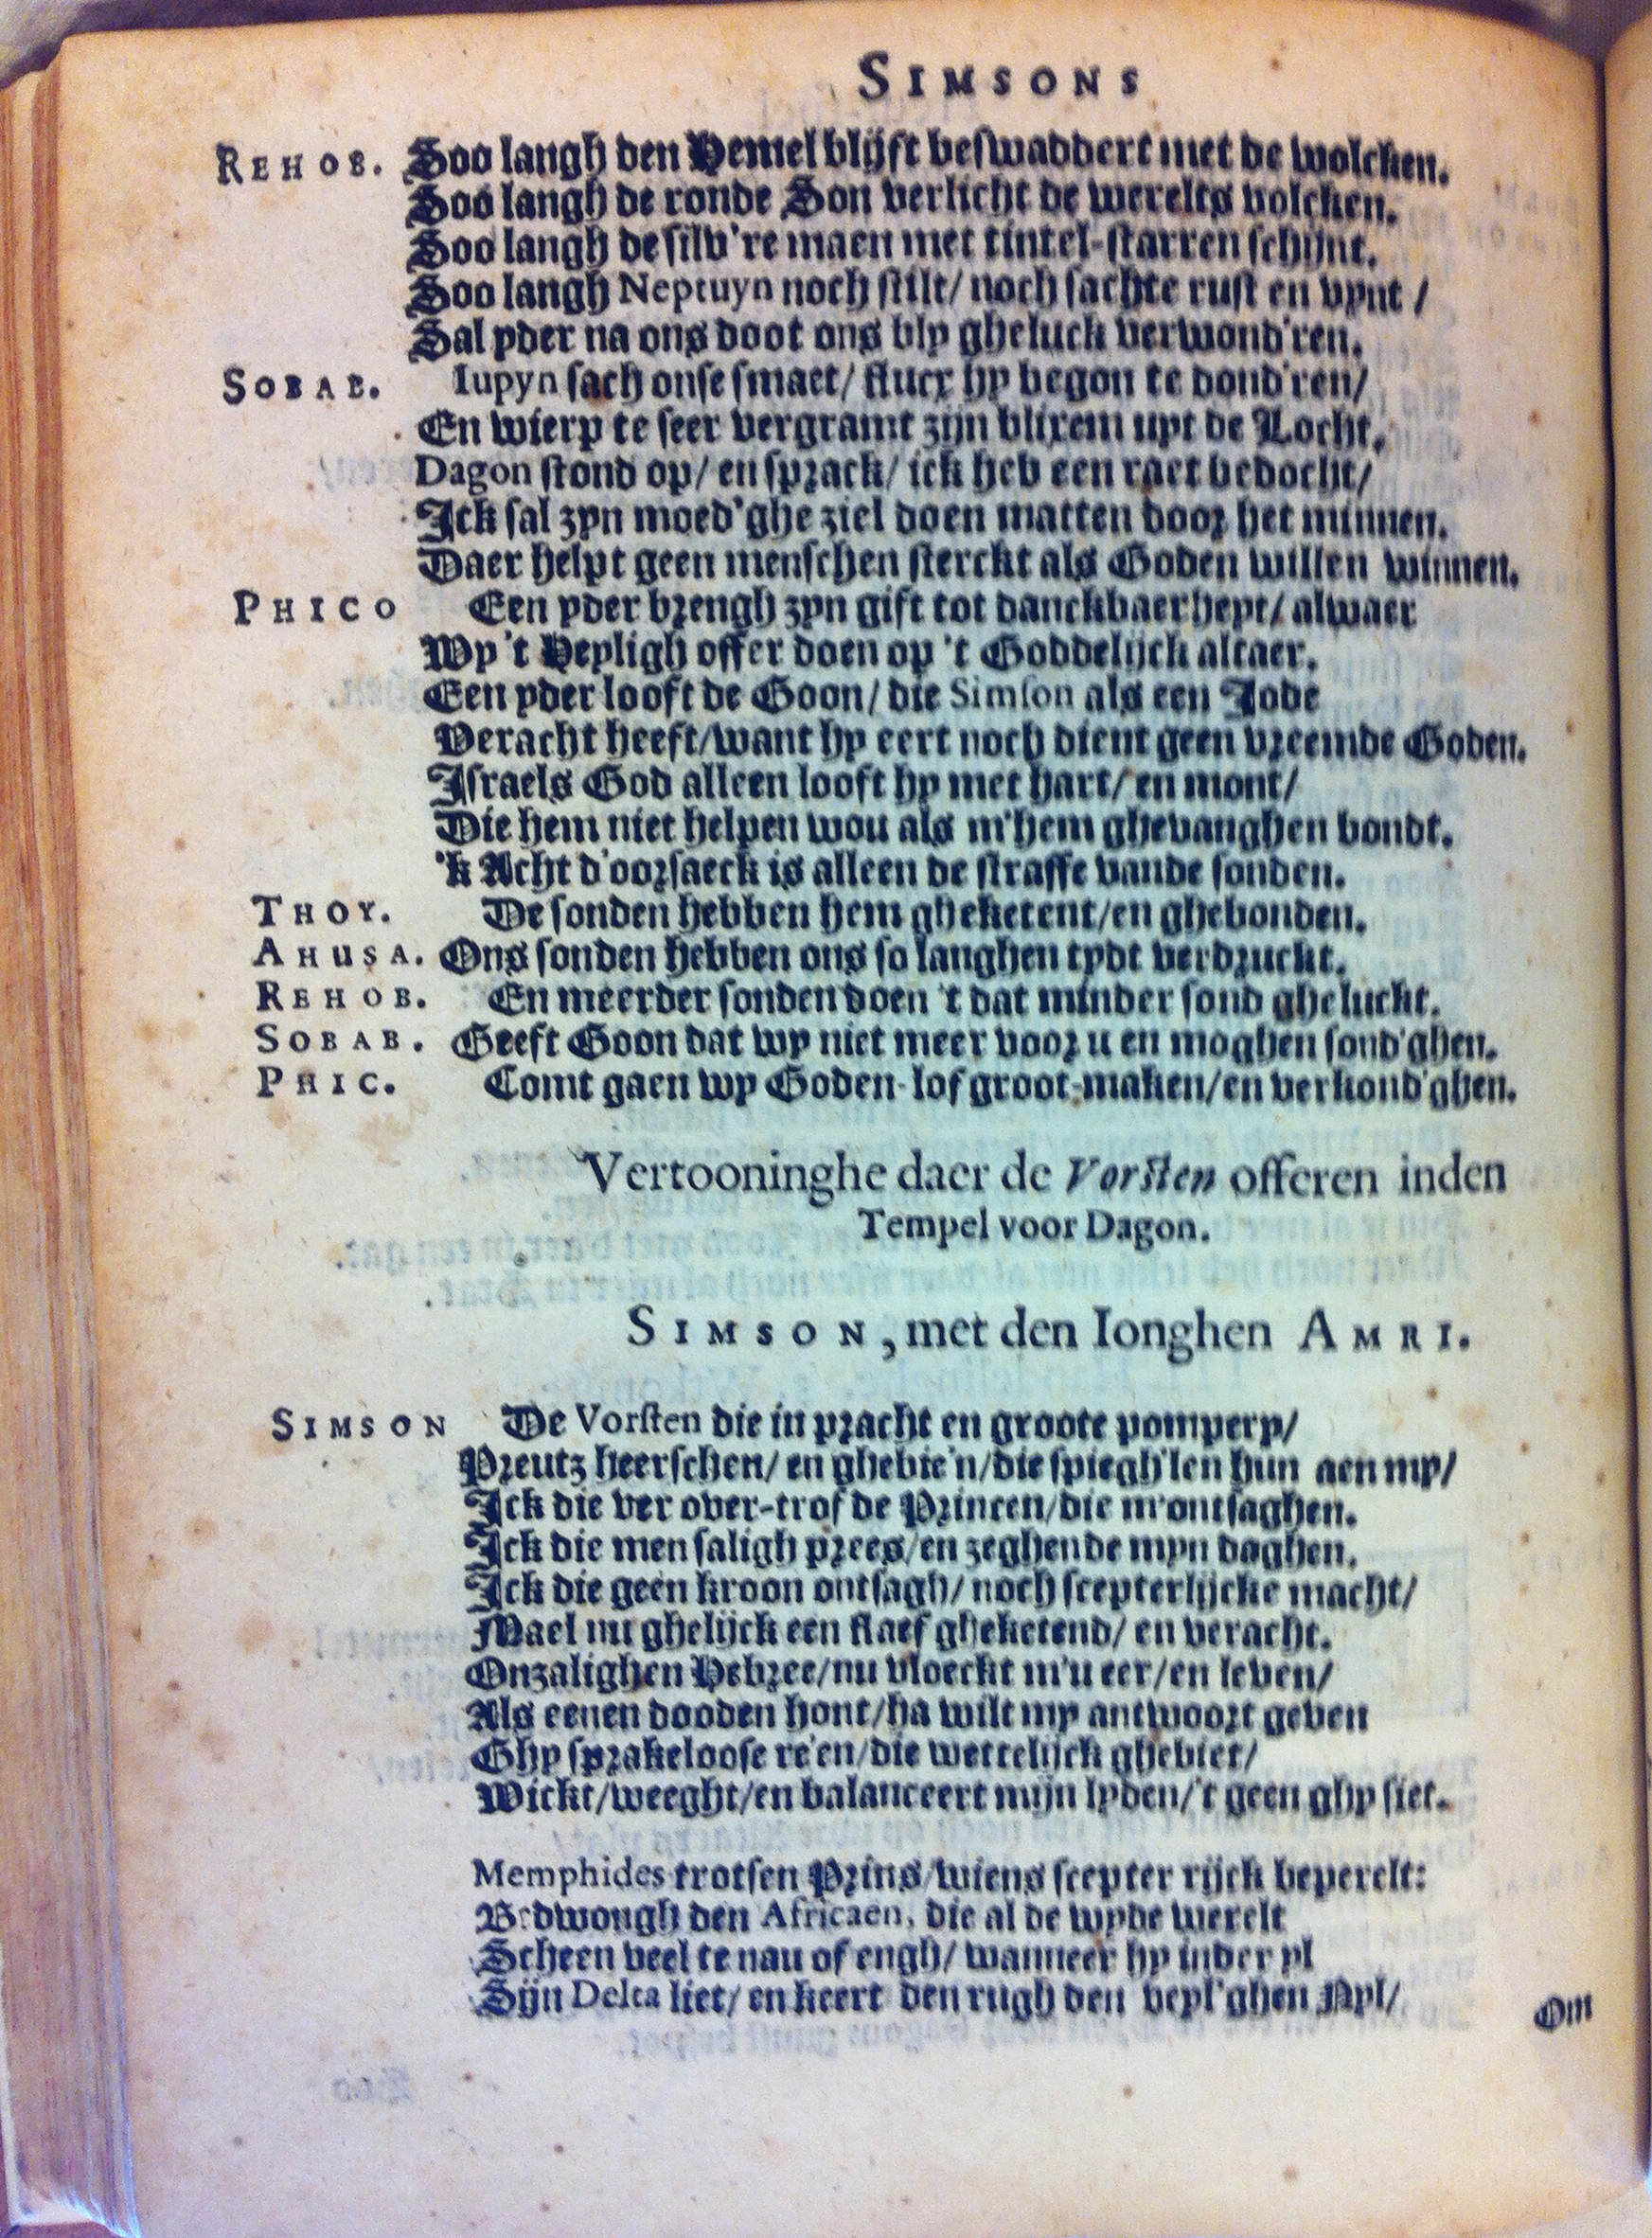 SIMSONS
REHOB. Soo langh den Hemel blijft beswaddert met de wolcken.
Soo langh de ronde Son verlicht de werelts volcken.
Soo langh de silv're maen met tintel-starren schijnt.
Soo langh Neptuyn noch stilt/ noch sachte rust en vynt /
Sal yder na ons doot ons bly gheluck verwond'ren.
SOBAB. Iupyn sach onse smaet/ flucx hy begon te dond'ren/
En wierp te seer vergramt zijn blixem uyt de Locht.
Dagon stond op/ en sprack/ ick heb een raet bedocht/
Ick sal zyn moed'ghe ziel doen matten door het minnen.
Daer helpt geen menschen sterckt als Goden willen winnen.
PHICO Een yder brengh zyn gift tot danckbaerheyt/ alwaer
Wy 't Heyligh offer doen op 't Goddelijck altaer.
Een yder looft de Goon/ die Simson als een Jode
Veracht heeft/want hy eert noch dient geen vreemde Goden.
Israels God alleen looft hy met hart/ en mont/
Die hem niet helpen wou als m'hem ghevanghen bondt.
'k Acht d'oorsaeck is alleen de straffe vande sonden.
THOY. De sonden hebben hem gheketent/en ghebonden.
AHUSA. Ons sonden hebben ons so langhen tydt verdruckt.
REHOB. En meerder sonden doen 't dat minder sond gheluckt.
SOBAB. Geeft Goon dat wy niet meer voor u en moghen sond'ghen.
PHIC. Comt gaen wy Goden-lof groot-maken/en verkond'ghen.
Vertooninghe daer de Vorsten offeren inden
Tempel voor Dagon.
SIMSON, met den Ionghen AMRI.
SIMSON De Vorsten die in pracht en groote pompery/
Preutz heerschen/ en ghebie'n/die spiegh'len hun aen my/
Ick die ver over-trof de Princen/die m'ontsaghen.
Ick die men saligh prees/en zeghende myn daghen.
Ick die geen kroon ontsagh/ noch scepterlijcke macht/
Mael nu ghelijck een slaef gheketend/ en veracht.
Onzalighen Hebree/nu vloeckt m'u eer/en leven/
Als eenen dooden hont/ha wilt my antwoort geven
Ghy sprakeloose re'en/die wettelijck ghebiet/
Wickt/weeght/en balanceert mijn lyden/'t geen ghy siet.
Memphides trotsen Prins/wiens scepter rijck beperelt:
Bedwongh den Africaen, die al de wyde werelt
Scheen veel te nau of engh/ wanneer hy inder yl
Sijn Delta liet/ en keert den rugh den veyl'ghen Nyl/
Om